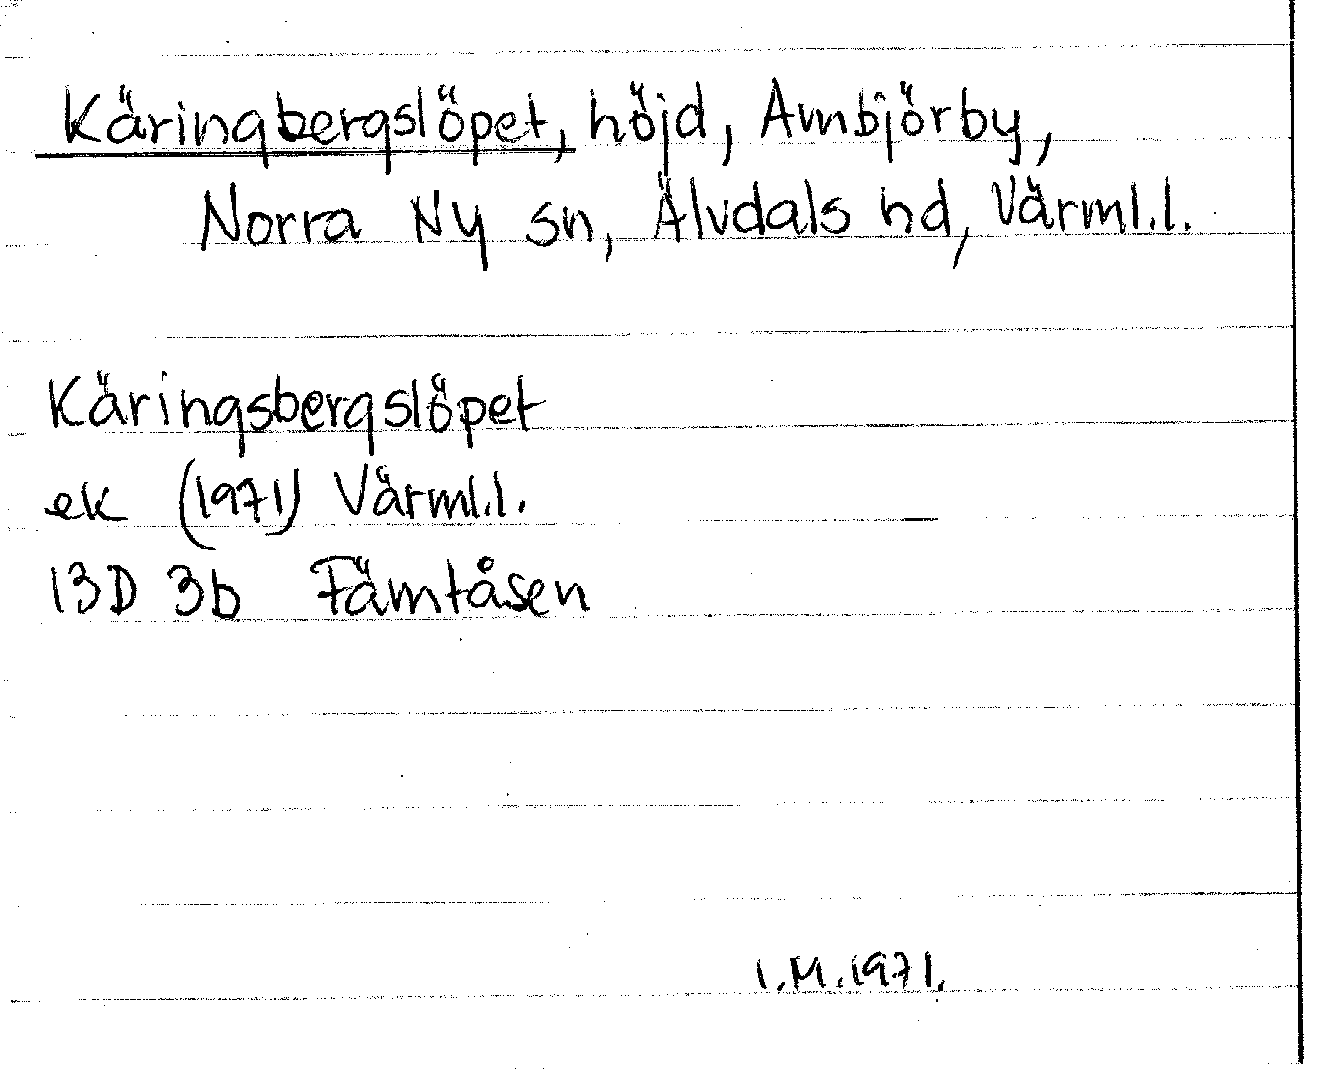 Käringbergslöpet, höjd, Ambjörby,
Norra Ny sn, Älvdals hd, Värml.l.
Käringsbergslöpet
ek (1971) Värml.l.
13D 3b Fämtåsen
I.M.1971.